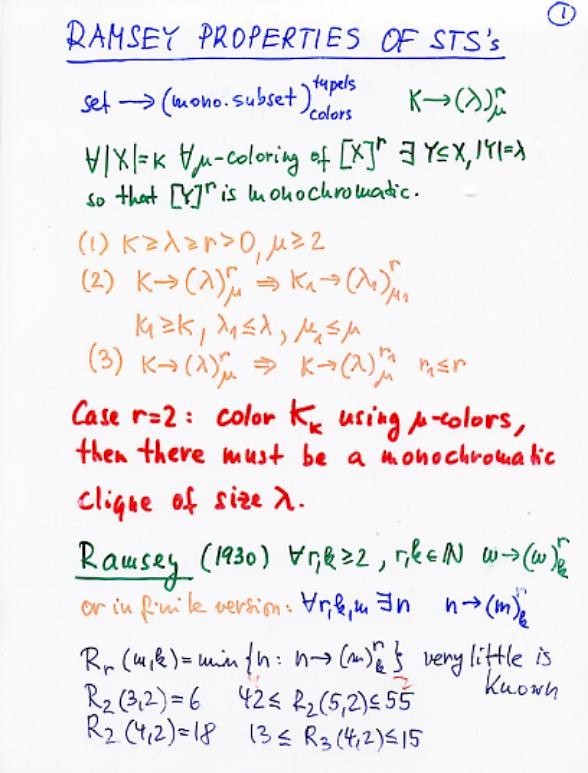 ①
RAMSEY PROPERTIES OF STS's
set → (mono. subset)^tupels_colors K → (λ)^r_μ
∀|X|=κ ∀μ-coloring of [X]^r ∃ Y⊆X, |Y|=λ
so that [Y]^r is monochromatic.
(1) κ ≥ λ ≥ r > 0, μ ≥ 2
(2) K → (λ)^r_μ ⇒ K₁ → (λ₁)^r_μ₁
K₁ ≥ K, λ₁ ≤ λ, μ₁ ≤ μ
(3) K → (λ)^r_μ ⇒ K → (λ)^r₁_μ r₁ ≤ r
Case r=2: color K_κ using μ-colors,
then there must be a monochromatic
clique of size λ.
Ramsey (1930) ∀r,k ≥ 2, r,k ∈ ℕ ω → (ω)^r_k
or in finite version: ∀r,k,m ∃n n → (m)^r_k
R_r(m,k) = min {n: n → (m)^r_k} very little is
known
R₂(3,2) = 6 42 ≤ R₂(5,2) ≤ 55
R₂(4,2) = 18 13 ≤ R₃(4,2) ≤ 15